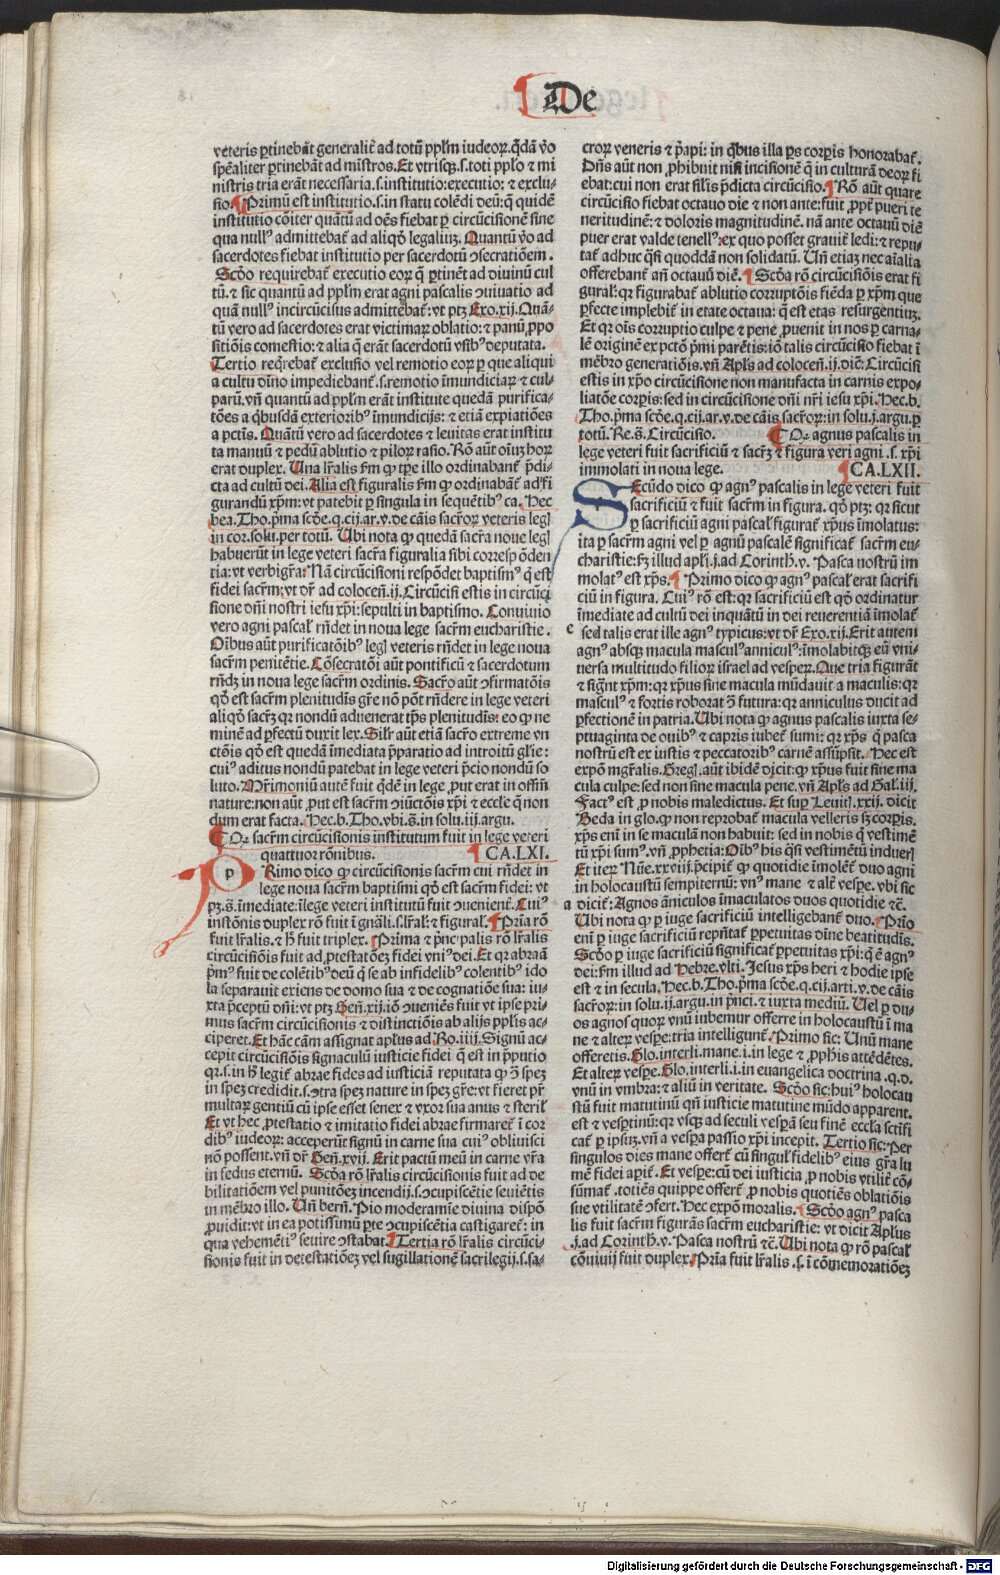 De
veteris ꝑtinebāt generalit̄ ad totū ppłm iudeoꝝ. q̄dā v̊o
spēaliter ꝑtinebāt ad mīstros. Et vtrisqꝫ .s. toti ppło ⁊ mi
nistris tria erāt necessaria .s. institutio: executio: ⁊ exclu-
sio. Primū est institutio .s. in statu colēdi deū: q̄ quidē
institutio cōiter quātū ad oēs fiebat ꝑ circūcisionē sine
qua nullꝰ admittebat̄ ad aliqd̄ legaliuꝫ. Quantū v̊o ad
sacerdotes fiebat institutio per sacerdotū ꝯsecratiōem.
Scd̄o requirebat̄ executio eoꝝ q̄ ꝑtinēt ad diuinū cul
tū. ⁊ sic quantū ad ppłm erat agni pascalis ꝯuiuatio ad
quā nullꝰ incircūcisus admittebat̄: vt ptꝫ Exo. xij. Quā-
tū vero ad sacerdotes erat victimaꝝ oblatio: ⁊ panū ꝓpo
sitiōis comestio: ⁊ alia q̄ erāt sacerdotū vsibꝰ deputata.
Tertio req̄rebat̄ exclusio vel remotio eoꝝ ꝑ que aliqui
a cultu diuīo impediebant̄ .s. remotio īmundiciaꝝ ⁊ cul-
parū. vn̄ quantū ad ppłm erāt institute quedā purifica-
tōes a qbusdā exterioribꝰ īmundicijs: ⁊ etiā expiatiōes
a pctīs. Quātū vero ad sacerdotes ⁊ leuitas erat institu
ta manuū ⁊ pedū ablutio ⁊ piloꝝ rasio. Rō aūt oīuꝫ hoꝝ
erat duplex. Una lr̄alis ẜm ꝙ tpe illo ordinabant̄ p̄di-
cta ad cultū dei. Alia est figuralis ẜm ꝙ ordinabāt̄ ad fi
gurandū xp̄m: vt patebit ꝑ singula in sequētibꝰ ca. Hec
bea. Tho. p̄ma scd̄e. q. cij. ar. v. de cāis sacr̄oꝝ veteris leḡ
in cor. solu. per totū. Ubi nota ꝙ quedā sacr̄a noue leḡ
habuerūt in lege veteri sacr̄a figuralia sibi correspōden
tia: vt verbigr̄a: Nā circūcisioni respōdet baptismꝰ q̄ est
fidei sacr̄m: vt dr̄ ad colocen̄. ij. Circūcisi estis in circūci
sione dn̄i nostri iesu xp̄i: sepulti in baptismo. Conuiuio
vero agni pascal̄ rn̄det in noua lege sacr̄m eucharistie.
Oībus aūt purificatōibꝰ leḡ veteris rn̄det in lege noua
sacr̄m penitētie. Cōsecratōi aūt pontificū ⁊ sacerdotum
rn̄dꝫ in noua lege sacr̄m ordinis. Sacr̄o aūt ꝯfirmatōis
qd̄ est sacr̄m plenitudīs gr̄e nō pōt rn̄dere in lege veteri
aliqd̄ sacrꝫ qꝛ nondū aduenerat tp̄s plenitudīs: eo ꝙ ne
minē ad ꝑfectū duxit lex. Silr̄ aūt etiā sacr̄o extreme vn
ctōis qd̄ est quedā īmediata p̄paratio ad introitū gl̄ie:
cuiꝰ aditus nondū patebat in lege veteri p̄cio nondū so
luto. Mr̄imoniū autē fuit q̄dē in lege ꝓut erat in offm̄
nature: non aūt ꝓut est sacr̄m ꝯiūctōis xp̄i ⁊ eccle q̄ non
dum erat facta. Hec. b. Tho. vbi. s̄. in solu. iij. argu.
Qꝛ sacr̄m circūcisionis institutum fuit in lege veteri
quattuor rōnibus. CA. LXI.
pRimo dico ꝙ circūcisionis sacr̄m cui rn̄det in
lege noua sacr̄m baptismi qd̄ est sacr̄m fidei: vt
pꝫ. s̄. īmediate: ī lege veteri institutū fuit ꝯuenient̄. Cuiꝰ
instōnis duplex rō fuit ī gn̄ali .s. lr̄al̄: ⁊ figural̄. Pria rō
fuit lr̄alis. ⁊ h̄ fuit triplex. Prima ⁊ pncipalis rō lr̄alis
circūcisiōis fuit ad ꝓtestatōeꝫ fidei vniꝰ dei. Et qꝛ abraā
p̄mꝰ fuit de colētibꝰ deū q̄ se ab infidelibꝰ colentibꝰ ido
la separauit exiens de domo sua ⁊ de cognatiōe sua: iu-
xta p̄ceptū dn̄i: vt ptꝫ Gen̄. xij. iō ꝯueniēs fuit vt ipse pri-
mus sacr̄m circūcisionis ⁊ distinctiōis ab alijs pplis ac-
ciperet. Et hāc cām assignat aplus ad Ro. iiij. Signū ac-
cepit circūcisiōis signaculū iusticie fidei q̄ est in p̄putio
qꝛ .s. in h̄ legit̄ abrae fides ad iusticiā reputata ꝙ ꝯ̄ spez
in spez credidit .s. ꝯtra spez nature in spez gr̄e: vt fieret pr̄
multaꝝ gentiū cū ipse esset senex ⁊ vxor sua anus ⁊ steril̄
Et vt hec ꝓtestatio ⁊ imitatio fidei abrae firmaret̄ ī cor
dibꝰ iudeoꝝ: acceperūt signū in carne sua cuiꝰ obliuisci
nō possent. vn̄ dr̄ Gen̄. xvij. Erit pactū meū in carne vr̄a
in fedus eternū. Scd̄a rō lr̄alis circūcisionis fuit ad de
bilitatiōem vel punitōeꝫ incendij .s. ꝯcupiscētie seuiētis
in mēbro illo. Un̄ bern̄. Pio moderamie diuina dispō
ꝓuidit: vt in ea potissimū ꝑte ꝯcupiscētia castigaret̄: in
qua vehemētiꝰ seuire ꝯstabat. Tertia rō lr̄alis circūci-
sionis fuit in detestatiōeꝫ vel sugillationē sacrilegij .s. sa-
croꝝ veneris ⁊ p̄api: in qbus illa ꝑs corꝑis honorabat̄.
Dn̄s aūt non ꝓhibuit nisi incisionē q̄ in culturā deoꝝ fi
ebat: cui non erat silis p̄dicta circūcisio. Rō aūt quare
circūcisio fiebat octauo die ⁊ non ante: fuit ꝓpt̄ pueri te
neritudinē: ⁊ doloris magnitudinē. nā ante octauū diē
puer erat valde tenellꝰ: ex quo posset grauit̄ ledi: ⁊ repu-
tat̄ adhuc qn̄i quoddā non solidatū. Un̄ etiaꝫ nec aīalia
offerebant̄ an̄ octauū diē. Scd̄a rō circūcisiōis erat fi
gural̄: qꝛ figurabat̄ ablutio corruptōis fiēda ꝑ xp̄m que
ꝑfecte implebit̄ in etate octaua: q̄ est etas resurgentiuꝫ.
Et qꝛ oīs corruptio culpe ⁊ pene ꝓuenit in nos ꝑ carna-
lē originē ex pctō p̄mi parētis: iō talis circūcisio fiebat ī
mēbro generatiōis. vn̄ Apls̄ ad colocen̄. ij. dic̄: Circūcisi
estis in xp̄o circūcisione non manufacta in carnis expo-
liatōe corꝑis: sed in circūcisione dn̄i nr̄i iesu xp̄i. Hec. b.
Tho. p̄ma scd̄e. q. cij. ar. v. de cāis sacr̄oꝝ: in solu. j. argu. ꝑ
totū. Re. s̄. Circūcisio. Qꝛ agnus pascalis in
lege veteri fuit sacrificiū ⁊ sacrꝫ ⁊ figura veri agni .s. xp̄i
immolati in noua lege. CA. LXII.
SEcūdo dico ꝙ agnꝰ pascalis in lege veteri fuit
sacrificiū ⁊ fuit sacr̄m in figura. qd̄ ptꝫ: qꝛ sicut
ꝑ sacrificiū agni pascal̄ figurat̄ xp̄us īmolatus:
ita ꝑ sacr̄m agni vel ꝑ agnū pascalē significat̄ sacr̄m eu-
charistie: ẜꝫ illud apli. j. ad Corinth̄. v. Pasca nostrū im
molatꝰ est xp̄s. Primo dico ꝙ agnꝰ pascal̄ erat sacrifi
ciū in figura. Cuiꝰ rō est: qꝛ sacrificiū est qd̄ ordinatur
īmediate ad cultū dei inquātū in dei reuerentiā īmolat̄
e sed talis erat ille agnꝰ typicus: vt dr̄ Exo. xij. Erit autem
agnꝰ absqꝫ macula masculꝰ anniculꝰ: īmolabitqꝫ eū vni-
uersa multitudo filioꝝ israel ad vesꝑeꝝ. Que tria figurāt
⁊ sign̄t xp̄m: qꝛ xp̄us sine macula mūdauit a maculis: qꝛ
masculꝰ ⁊ fortis roborat ꝯ̄ futura: qꝛ anniculus ducit ad
ꝑfectionē in patria. Ubi nota ꝙ agnus pascalis iuxta se-
ptuaginta de ouibꝰ ⁊ capris iubet̄ sumi: qꝛ xp̄s q̄ pasca
nostrū est ex iustis ⁊ peccatoribꝰ carnē assūpsit. Hec est
expō mgr̄alis. Greḡ. aūt ibidē dicit: ꝙ xp̄us fuit sine ma
cula culpe: sed non sine macula pene. vn̄ Apls̄ ad Gal̄. iij.
Factꝰ est ꝓ nobis maledictus. Et sup Leuit̄. xxij. dicit
Beda in glo. ꝙ non reprobat̄ macula velleris sꝫ corꝑis.
xp̄s eni in se maculā non habuit: sed in nobis q̄ vestimē
tū xp̄i sumꝰ. vn̄ ꝓphetia: Oībꝰ his qn̄i vestimētū induer̄
Et iteꝝ Nūe. xxviij. p̄cipit̄ ꝙ quotidie īmolēt̄ duo agni
in holocaustū sempiternū: vnꝰ mane ⁊ alt̄ vesꝑe. vbi sic
a dicit̄: Agnos āniculos īmaculatos duos quotidie ⁊c̄.
Ubi nota ꝙ ꝑ iuge sacrificiū intelligebant̄ duo. Prīo
eni ꝑ iuge sacrificiū repn̄tat̄ ꝑpetuitas diīne beatitudis.
Scd̄o ꝑ iuge sacrificiū significat̄ ꝑpetuitas xp̄i: q̄ ē agnꝰ
dei: ẜm illud ad Hebre. vlti. Jesus xp̄s heri ⁊ hodie ipse
est ⁊ in secula. Hec. b. Tho. p̄ma scd̄e. q. cij. arti. v. de cāis
sacr̄oꝝ: in solu. ij. argu. in p̄nci. ⁊ iuxta mediū. Uel ꝑ du-
os agnos quoꝝ vnū iubemur offerre in holocaustū ī ma
ne ⁊ alteꝝ vesꝑe: tria intelligunt̄. Primo sic: Unū mane
offeretis. Glo. interli. mane .i. in lege ⁊ ꝓphis attēdētes.
Et alteꝝ vesꝑe. Glo. interli. i. in euangelica doctrina. q. d.
vnū in vmbra: ⁊ aliū in veritate. Scd̄o sic: huiꝰ holocau
stū fuit matutinū qn̄ iusticie matutine mūdo apparent.
est ⁊ vesꝑtinū: qꝛ vsqꝫ ad seculi vesꝑā seu finē eccl̄a sc̄tifi
cat̄ ꝑ ipsuꝫ. vn̄ a vesꝑa passio xp̄i incepit. Tertio sic: Per
singulos dies mane offert̄ cū singul̄ fidelibꝰ eius gr̄a lu
mē fidei aꝑit̄. Et vesꝑe: cū dei iusticia ꝓ nobis vtilit̄ cō-
sūmat̄. totiēs quippe offert̄ ꝓ nobis quotiēs oblatiōis
sue vtilitatē ꝯfert. Hec expō moralis. Scd̄o agnꝰ pasca
lis fuit sacr̄m figurās sacr̄m eucharistie: vt dicit Aplus
j. ad Corinth̄. v. Pasca nostrū ⁊c̄. Ubi nota ꝙ rō pascal̄
cōuiuij fuit duplex. Pria fuit lr̄alis .s. ī cōmemoratiōeꝫ
Digitalisierung gefördert durch die Deutsche Forschungsgemeinschaft - DFG